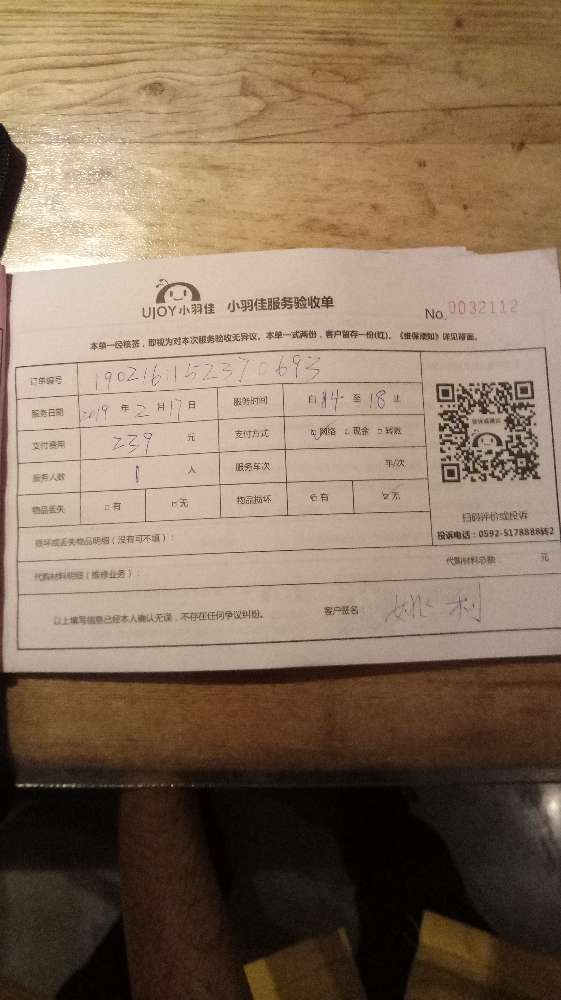 UJOY小羽佳 小羽佳服务验收单
No. 0032112
本单一经核签，即视为对本次服务验收无异议。本单一式两份，客户留存一份(红)。《维保须知》详见背面。
订单编号 1902161152370693
服务日期 2019 年 2 月 17 日 服务时间 自 14 至 18 止
支付费用 239 元 支付方式 □网络 □现金 □转账
服务人数 1 人 服务车次 车/次
物品丢失 □有 □无 物品损坏 □有 □无
扫码评价或投诉
投诉电话：0592-5178888转2
损坏或丢失物品明细（没有可不填）：
代购材料明细（维修业务）： 代购材料总额： 元
以上填写信息已经本人确认无误，不存在任何争议纠纷。 客户签名： 姚利